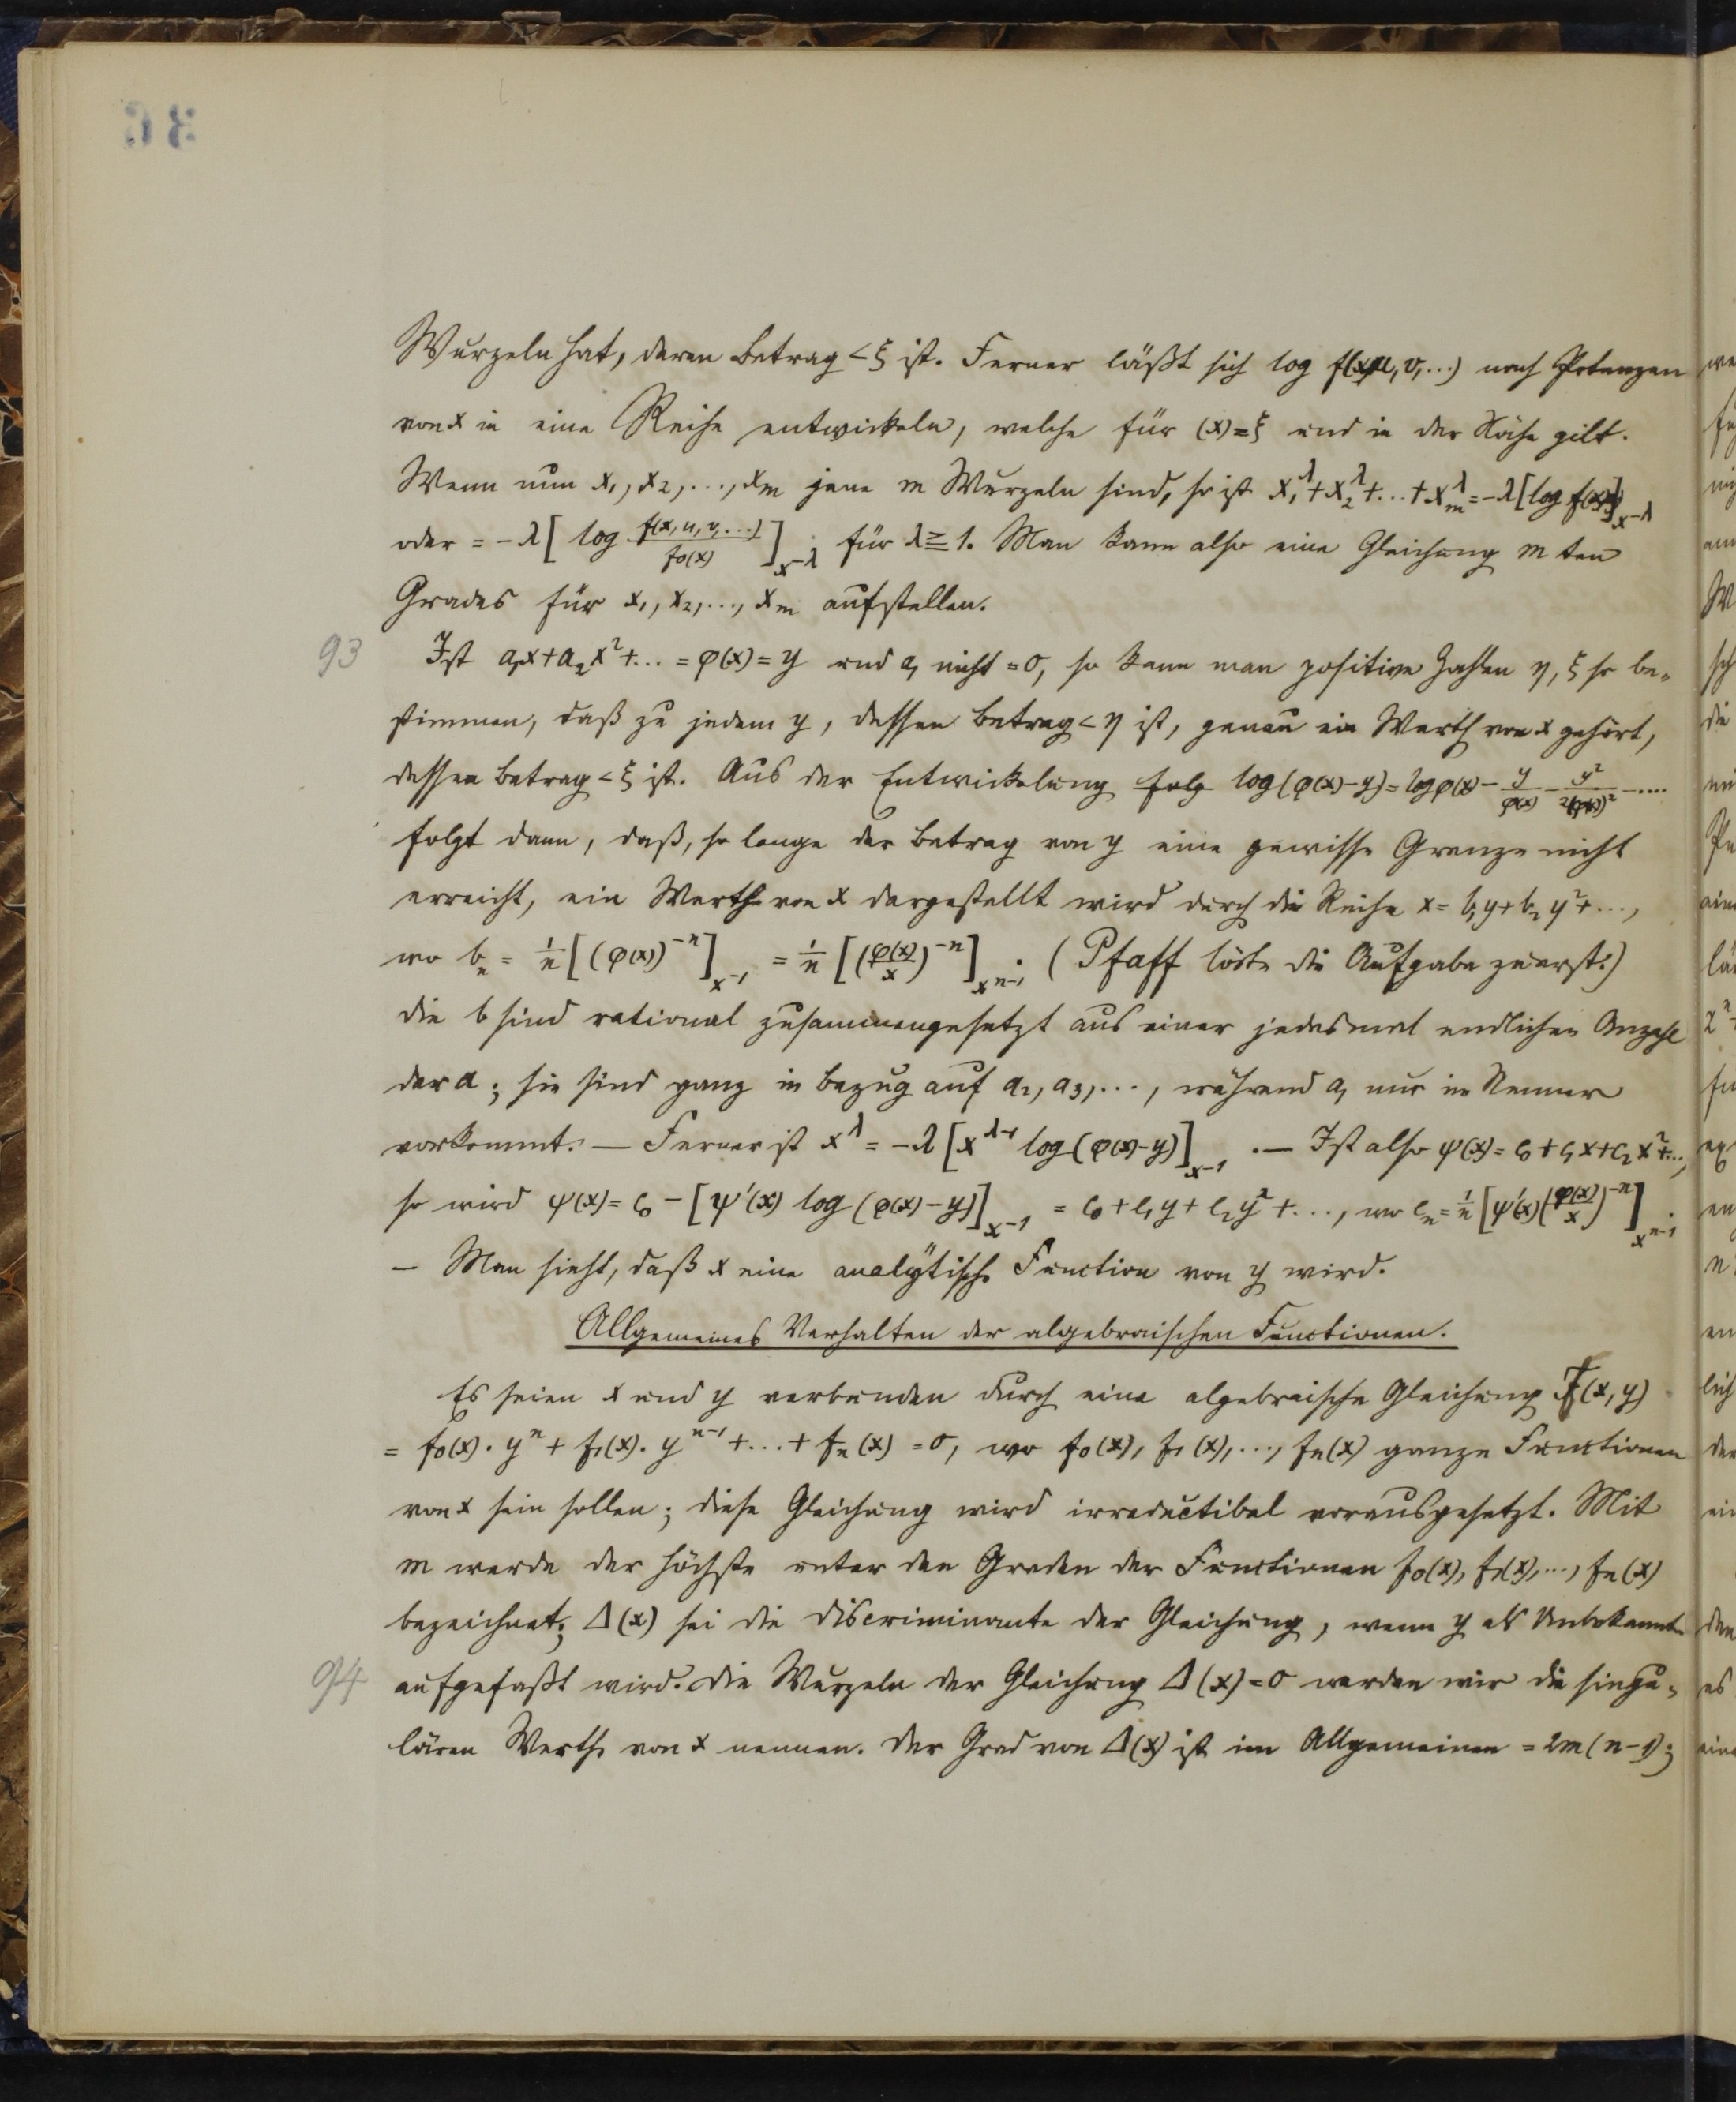 Wurzeln hat, deren Betrag < ξ ist. Ferner läßt sich log f(x,u,v,...) nach Potenzen
von x in eine Reihe entwickeln, welche für (x) = ξ und in der Nähe gilt.
Wenn nun x₁, x₂, ..., xₘ jene m Wurzeln sind, so ist x₁^λ + x₂^λ + ... + xₘ^λ = -λ[log f(x)]_{x^{-λ}}
oder = -λ[log \frac{f(x,u,v,...)}{f₀(x)}]_{x^{-λ}} für λ ≧ 1. Man kann also eine Gleichung mten
Grades für x₁, x₂, ..., xₘ aufstellen.
93 Ist a₁x + a₂x² + ... = φ(x) = y und a₁ nicht = 0, so kann man positive Zahlen η, ξ so be-
stimmen, daß zu jedem y, dessen Betrag < η ist, genau ein Werth von x gehört,
dessen Betrag < ξ ist. Aus der Entwickelung folg log(φ(x)-y) = log φ(x) - \frac{y}{φ(x)} - \frac{y²}{2(φ(x))²} - ....
folgt dann, daß, so lange der Betrag von y eine gewisse Grenze nicht
erreicht, ein Werth von x dargestellt wird durch die Reihe x = b₁y + b₂y² + ...,
wo bₙ = \frac{1}{n}[(φ(x))^{-n}]_{x^{-1}} = \frac{1}{n}[(\frac{φ(x)}{x})^{-n}]_{x^{n-1}}; (Pfaff löste die Aufgabe zuerst.)
die b sind rational zusammengesetzt aus einer jedesmal endlichen Anzahl
der a; sie sind ganz in bezug auf a₂, a₃, ..., während a₁ nur im Nenner
vorkommt. — Ferner ist x^λ = -λ[x^{λ-1} log(φ(x)-y)]_{x^{-1}}. — Ist also ψ(x) = c₀ + c₁x + c₂x² + ...,
so wird ψ(x) = c₀ - [ψ'(x) log(φ(x)-y)]_{x^{-1}} = c₀ + e₁y + e₂y² + ..., wo eₙ = \frac{1}{n}[ψ'(x)(\frac{φ(x)}{x})^{-n}]_{x^{n-1}}.
— Man sieht, daß x eine analytische Function von y wird.
Allgemeines Verhalten der algebraischen Functionen.
Es seien x und y verbunden durch eine algebraische Gleichung F(x,y)
= f₀(x)·yⁿ + f₁(x)·y^{n-1} + ... + fₙ(x) = 0, wo f₀(x), f₁(x), ..., fₙ(x) ganze Functionen
von x sein sollen; diese Gleichung wird irreductibel vorausgesetzt. Mit
m werde der höchste unter den Graden der Functionen f₀(x), f₁(x), ..., fₙ(x)
bezeichnet; Δ(x) sei die Discriminante der Gleichung, wenn y als Unbekannte
94 aufgefaßt wird. Die Wurzeln der Gleichung Δ(x) = 0 werden wir die singu-
lären Werthe von x nennen. Der Grad von Δ(x) ist im Allgemeinen = 2m(n-1);